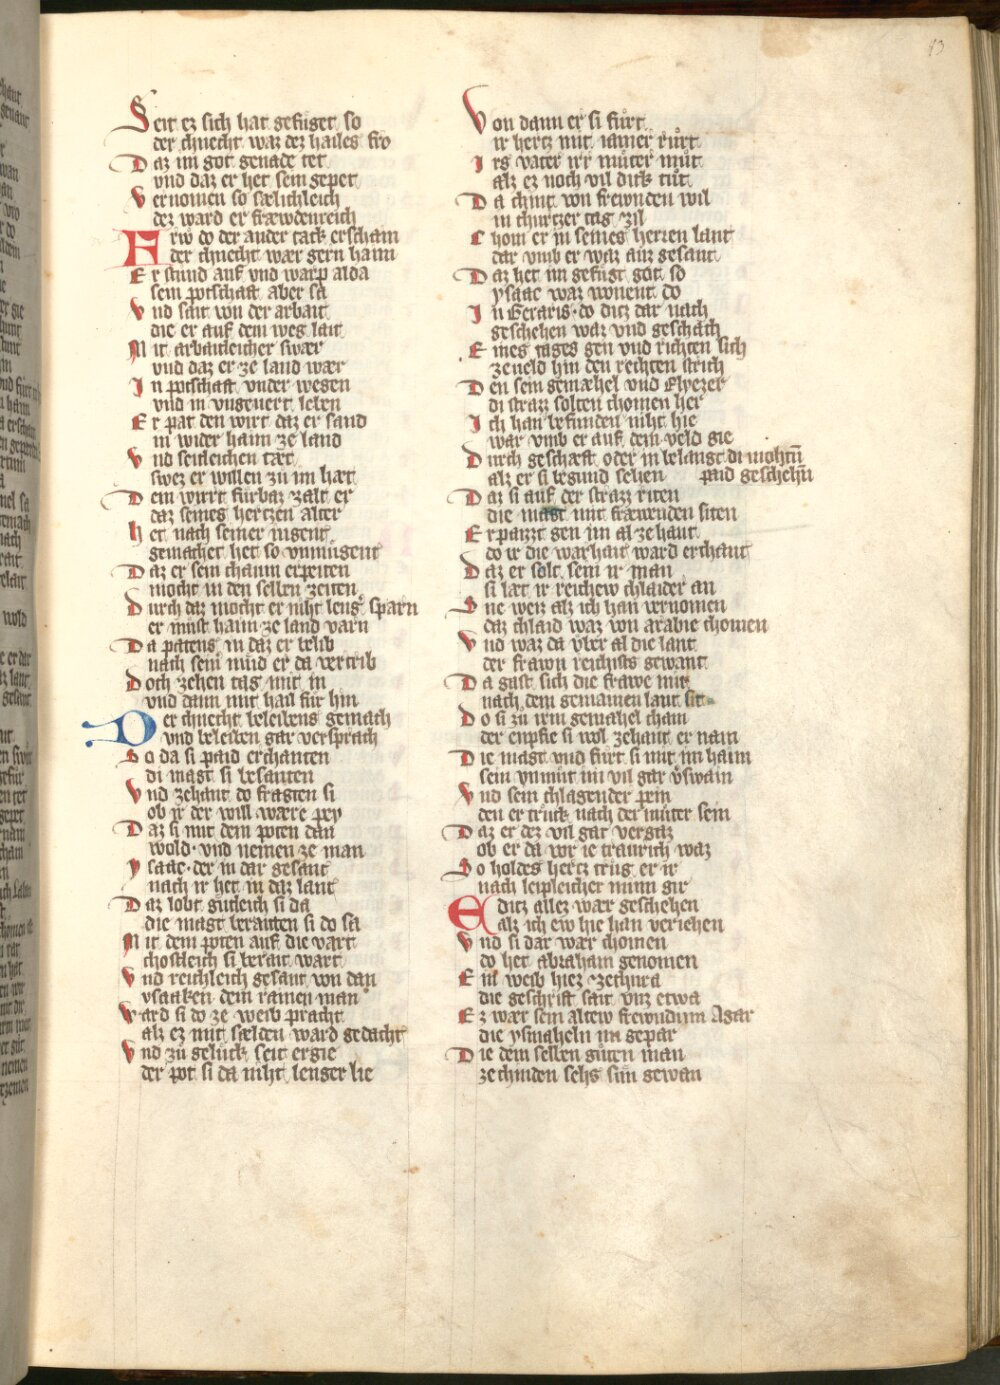 13
Seit ez sich hat gefuͤget so
der chnecht waz dez hailes fro
Daz im got genade tet
vnd daz er het sein gepet
Vernomen so sælichleich
dez ward er fræwdenreich
Frw do der ander tack erschain
der chnecht wær gern haim
Er stuͤnd auf vnd warp alda
sein potschaft aber sa
Vnd sait von der arbait
die er auf dem weg lait
Mit arbaitleicher swær
vnd daz er ze land wær
In potschaft vnder wegen
vnd in vngeuert leben
Er pat den wirt daz er sand
in wider haim ze land
Vnd senleichen tæt
swez er willen zuͤ im hæt
Dem wirt fuͤrbaz zalt er
daz seines hertzen alter
Het nach seiner iugent
gemachet het so vnmuͤgent
Daz er sein chaum erpeiten
mocht in den selben zeiten
Durch daz mocht er niht leng sparn
er muͤst haim ze land varn
Da patens in daz er belib
nach sein muͤd er da vertrib
Doch zehen tag mit in
vnd dann mit hail fuͤr hin
Der chnecht beleibens gemach
vnd beleiben gar versprach
So da si paid erchanten
di magt si besanten
Vnd zehant do fragten si
ob ir der will wære pey
Daz si mit dem poten dan
wold vnd nemen ze man
Ysaac der in dar gesant
nach ir het in daz lant
Daz lobt guͤtleich si da
die magt beraiten si do sa
Mit dem poten auf die vart
chostleich si berait wart
Vnd reichleich gesant von dan
ysaaken dem rainen man
Ward si do ze weib pracht
alz ez mit sælden ward gedacht
Vnd zuͤ geluͤck seit ergie
der pot si da niht lenger lie
Von dann er si fuͤrt
ir hertz mit iamer ruͤrt
Irs vater irr muͤter muͤt
alz ez noch vil dick tuͤt
Da chint von frewnden wil
in churtzer tag zil
Chom er in seines herren lant
dar vmb er waz auz gesant
Daz het im gefuͤgt got so
ysaac waz wonent do
In Geraris do ditz dar nach
geschehen waz vnd geschach
Eines tages gen vnd richten sich
ze ueld hin den rechten strich
Den sein gemæhel vnd Elyezer
di strazz solten chomen her
Ich han befunden niht hie
war vmb er auf dem veld gie
Durch geschæft oder in belangt di mohten
alz er si begund sehen paid geschehen
Daz si auf der strazz riten
die magt mit fræwnden siten
Erpaizzt gen im al ze hant
do ir die warhait ward erchant
Daz er solt sein ir man
si læt ir reichew chlaider an
Sne weiz alz ich han vernomen
daz chlaid waz von arabie chomen
Vnd waz da vber al die lant
der frawn reichists gewant
Da gast sich die frawe mit
nach dem gemainen lant sit
Do si zuͤ irm gemahel cham
der enpfie si wol zehant er nam
Die magt vnd fuͤrt si mit im haim
sein vnmuͤt im vil gar vswain
Vnd sein chlagender pein
den er truͤck nach der muͤter sein
Daz er dez vil gar vergaz
ob er da vor ie traurich waz
So holdes hertz truͤg er ir
nach leipleicher minn gir
E ditz allez wær geschehen
alz ich ew hie han veriehen
Vnd si dar wær chomen
do het abraham genomen
Ein weib hiez zechura
die geschrift sait vnz etwa
Ez wær sein altew frewndinn Agar
die ysmaheln im gepar
Die dem selben guͤten man
ze chinden sehs suͤn gewan